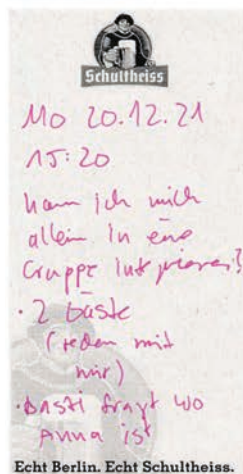 Schultheiss
Mo 20.12.21
15:20
kann ich mich
allein in eine
Gruppe integrieren?
· 2 Gäste
(reden mit
mir)
· Basti fragt wo
Anna ist
Echt Berlin. Echt Schultheiss.